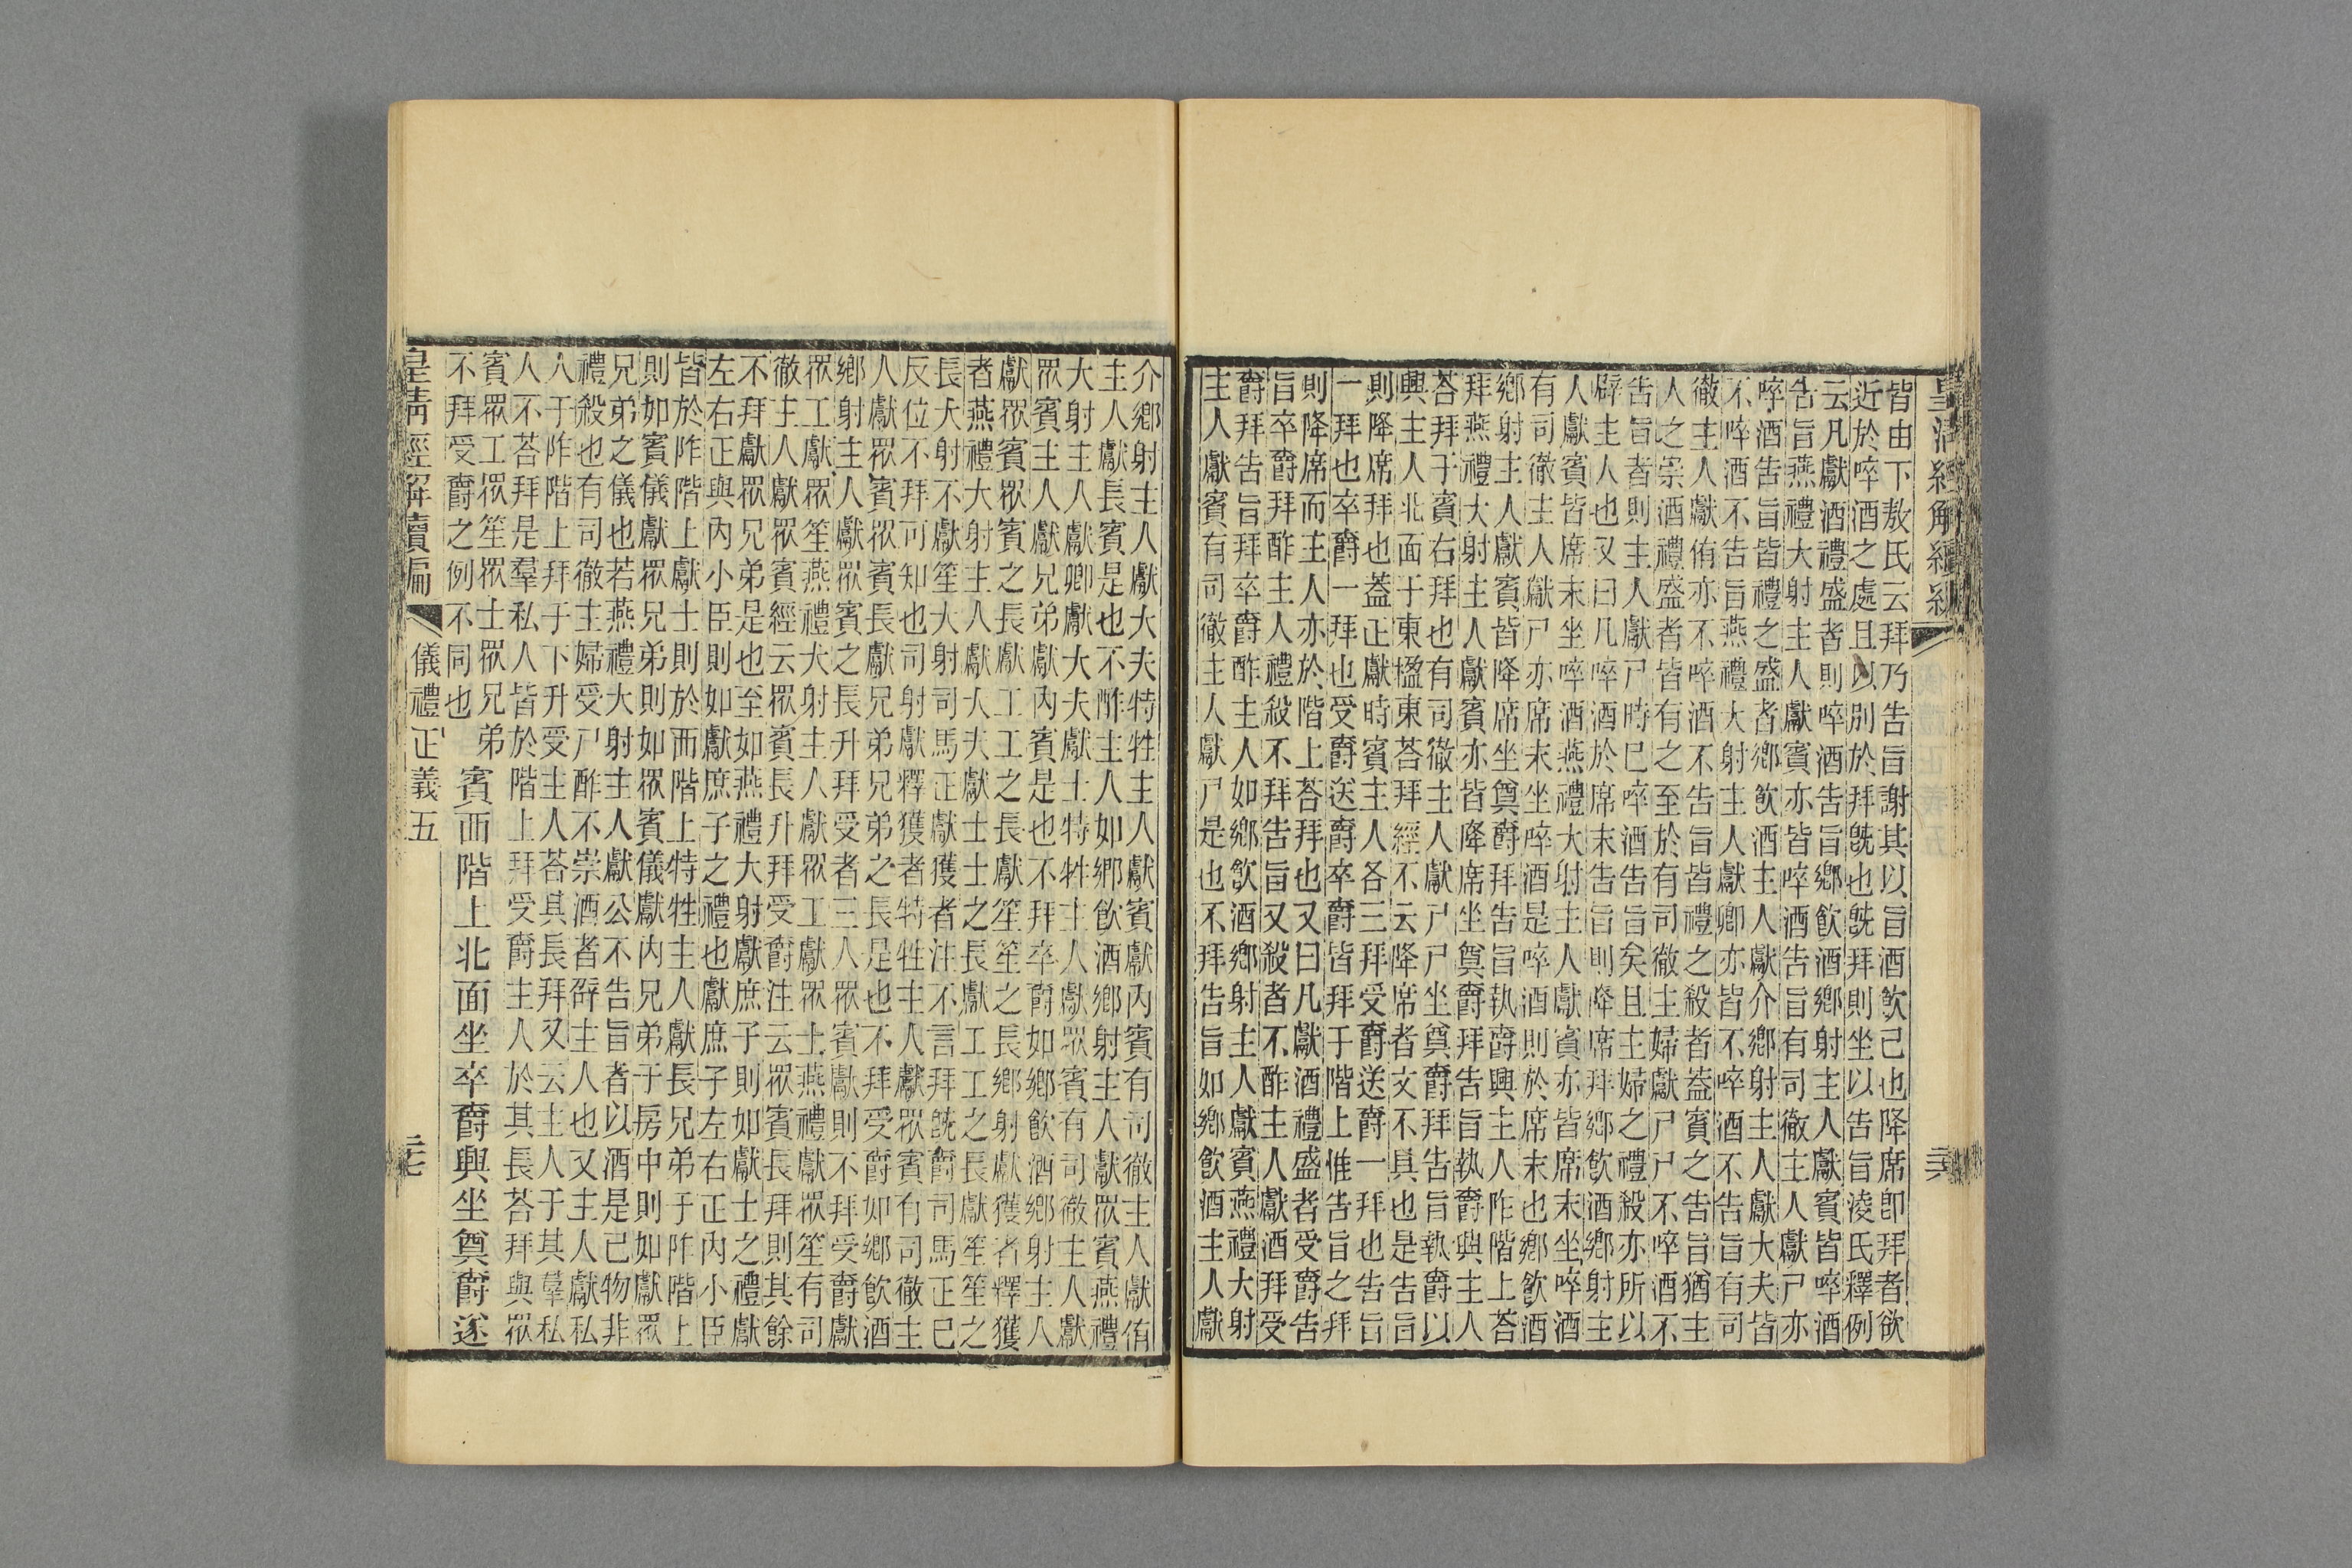 皇清經解續編
皆由下敖氏云拜乃告旨謝其以旨酒飮己也降席卽拜者欲
近於啐酒之處且以別於拜旣也旣拜則坐以告旨淩氏釋例
云凡獻酒禮盛者則啐酒告旨鄉飮酒鄉射主人獻賓皆啐酒
告旨燕禮大射主人獻賓亦皆啐酒告旨有司徹主人獻尸亦
啐酒告旨皆禮之盛者鄉飮酒主人獻介鄉射主人獻大夫皆
不啐酒不告旨燕禮大射主人獻卿亦皆不啐酒不告旨有司
徹主人獻侑亦不啐酒不告旨皆禮之殺者葢賓之告旨猶主
人之崇酒禮盛者皆有之至於有司徹主婦獻尸尸不啐酒不
告旨者則主人獻尸時已啐酒告旨矣且主婦之禮殺亦所以
辟主人也又曰凡啐酒於席末告旨則降席拜鄉飮酒鄉射主
人獻賓皆席末坐啐酒燕禮大射主人獻賓亦皆席末坐啐酒
有司徹主人獻尸亦席末坐啐酒是啐酒則於席末也鄉飮酒
鄉射主人獻賓皆降席坐奠爵拜告旨執爵興主人阼階上荅
拜燕禮大射主人獻賓亦皆降席坐奠爵拜告旨執爵興主人
荅拜于賓右拜也有司徹主人獻尸尸坐奠爵拜告旨執爵以
興主人北面于東楹東荅拜經不云降席者文不具也是告旨
則降席拜也葢正獻時賓主人各三拜受爵送爵一拜也告旨
一拜也卒爵一拜也受爵送爵卒爵皆拜于階上惟告旨之拜
則降席而主人亦於階上荅拜也又曰凡獻酒禮盛者受爵告
旨卒爵拜酢主人禮殺不拜告旨又殺者不酢主人獻酒拜受
爵拜告旨拜卒爵酢主人如鄉飮酒鄉射主人獻賓燕禮大射
主人獻賓有司徹主人獻尸是也不拜告旨如鄉飮酒主人獻
介鄉射主人獻大夫特牲主人獻賓獻內賓有司徹主人獻侑
主人獻長賓是也不酢主人如鄉飮酒鄉射主人獻眾賓燕禮
大射主人獻卿獻大夫獻士特牲主人獻眾賓有司徹主人獻
眾賓主人獻兄弟獻內賓是也不拜卒爵如鄉飮酒鄉射主人
獻眾賓眾賓之長獻工工之長獻笙笙之長鄉射獻獲者釋獲
者燕禮大射主人獻大夫獻士士之長獻工工之長獻笙笙之
長大射不獻笙大射司馬正獻獲者注不言拜旣爵司馬正已
反位不拜可知也司射獻釋獲者特牲主人獻眾賓有司徹主
人獻眾賓眾賓長獻兄弟兄弟之長是也不拜受爵如鄉飮酒
鄉射主人獻眾賓之長升拜受者三人眾賓獻則不拜受爵獻
眾工獻眾笙燕禮大射主人獻眾工獻眾士燕禮獻眾笙有司
徹主人獻眾賓經云眾賓長升拜受爵注云眾賓長拜則其餘
不拜獻眾兄弟是也至如燕禮大射獻庶子則如獻士之禮獻
左右正與內小臣則如獻庶子之禮也獻庶子左右正內小臣
皆於阼階上獻士則於西階上特牲主人獻長兄弟于阼階上
則如賓儀獻眾兄弟則如眾賓儀獻內兄弟于房中則如獻眾
兄弟之儀也若燕禮大射主人獻公不告旨者以酒是己物非
禮殺也有司徹主婦受尸酢不崇酒者辟主人也又主人獻私
人于阼階上拜于下升受主人荅其長拜又云主人于其羣私
人不荅拜是羣私人皆於階上拜受爵主人於其長荅拜與眾
賓眾工眾笙眾士眾兄弟
不拜受爵之例不同也
賓西階上北面坐卒爵興坐奠爵遂
皇清經解續編
儀禮正義五